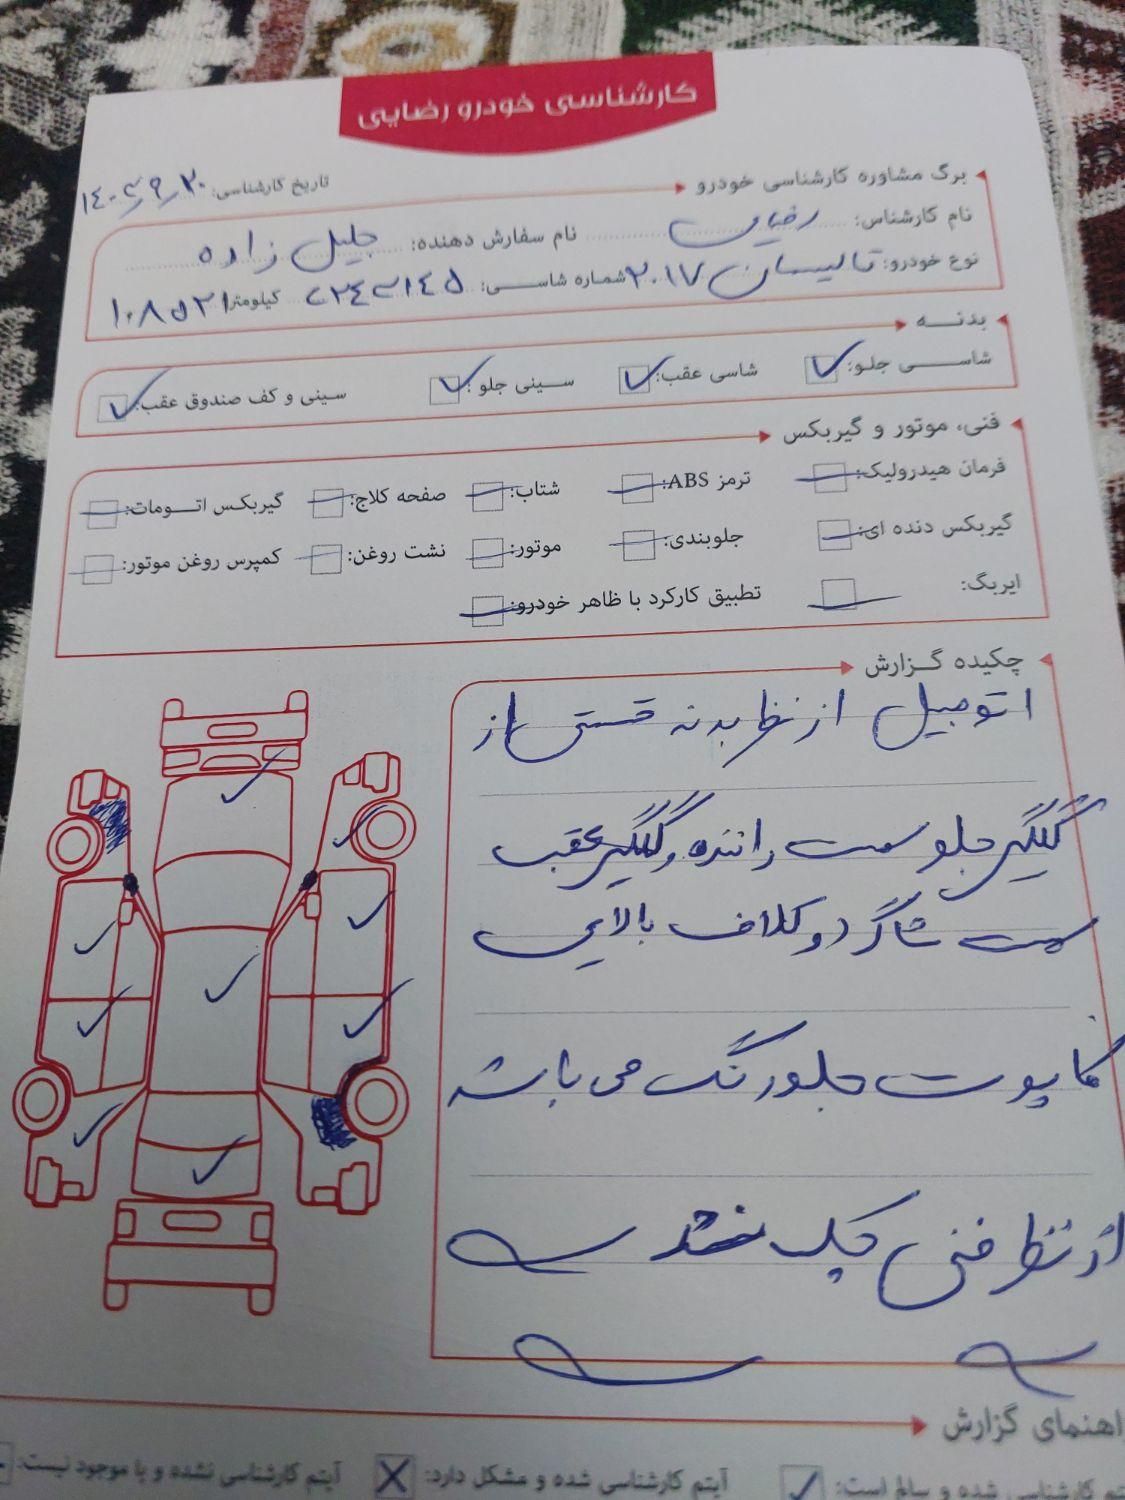 کارشناسی خودرو رضایی
برگ مشاوره کارشناسی خودرو
تاریخ کارشناسی:
نام کارشناس: رضایی نام سفارش دهنده: جلیل زاده
نوع خودرو: تالیسمان ۲۰۱۷ شماره شاسی: کیلومتر: ۱۰۸۵۲۱
بدنه
شاسی جلو: شاسی عقب: سینی جلو: سینی و کف صندوق عقب:
فنی، موتور و گیربکس
فرمان هیدرولیک: ترمز ABS: شتاب: صفحه کلاج: گیربکس اتومات:
گیربکس دنده ای: جلوبندی: موتور: نشت روغن: کمپرس روغن موتور:
ایربگ: تطبیق کارکرد با ظاهر خودرو:
چکیده گزارش
اتومبیل از نظر بدنه قسمتی از
گلگیر جلو سمت راننده و گلگیر عقب
سمت شاگرد و کلاف بالایی
کاپوت جلو رنگ می باشد
از نظر فنی چک نشد
اهنمای گزارش
تم کارشناسی شده و سالم است: آیتم کارشناسی شده و مشکل دارد: آیتم کارشناسی نشده و یا موجود نیست: